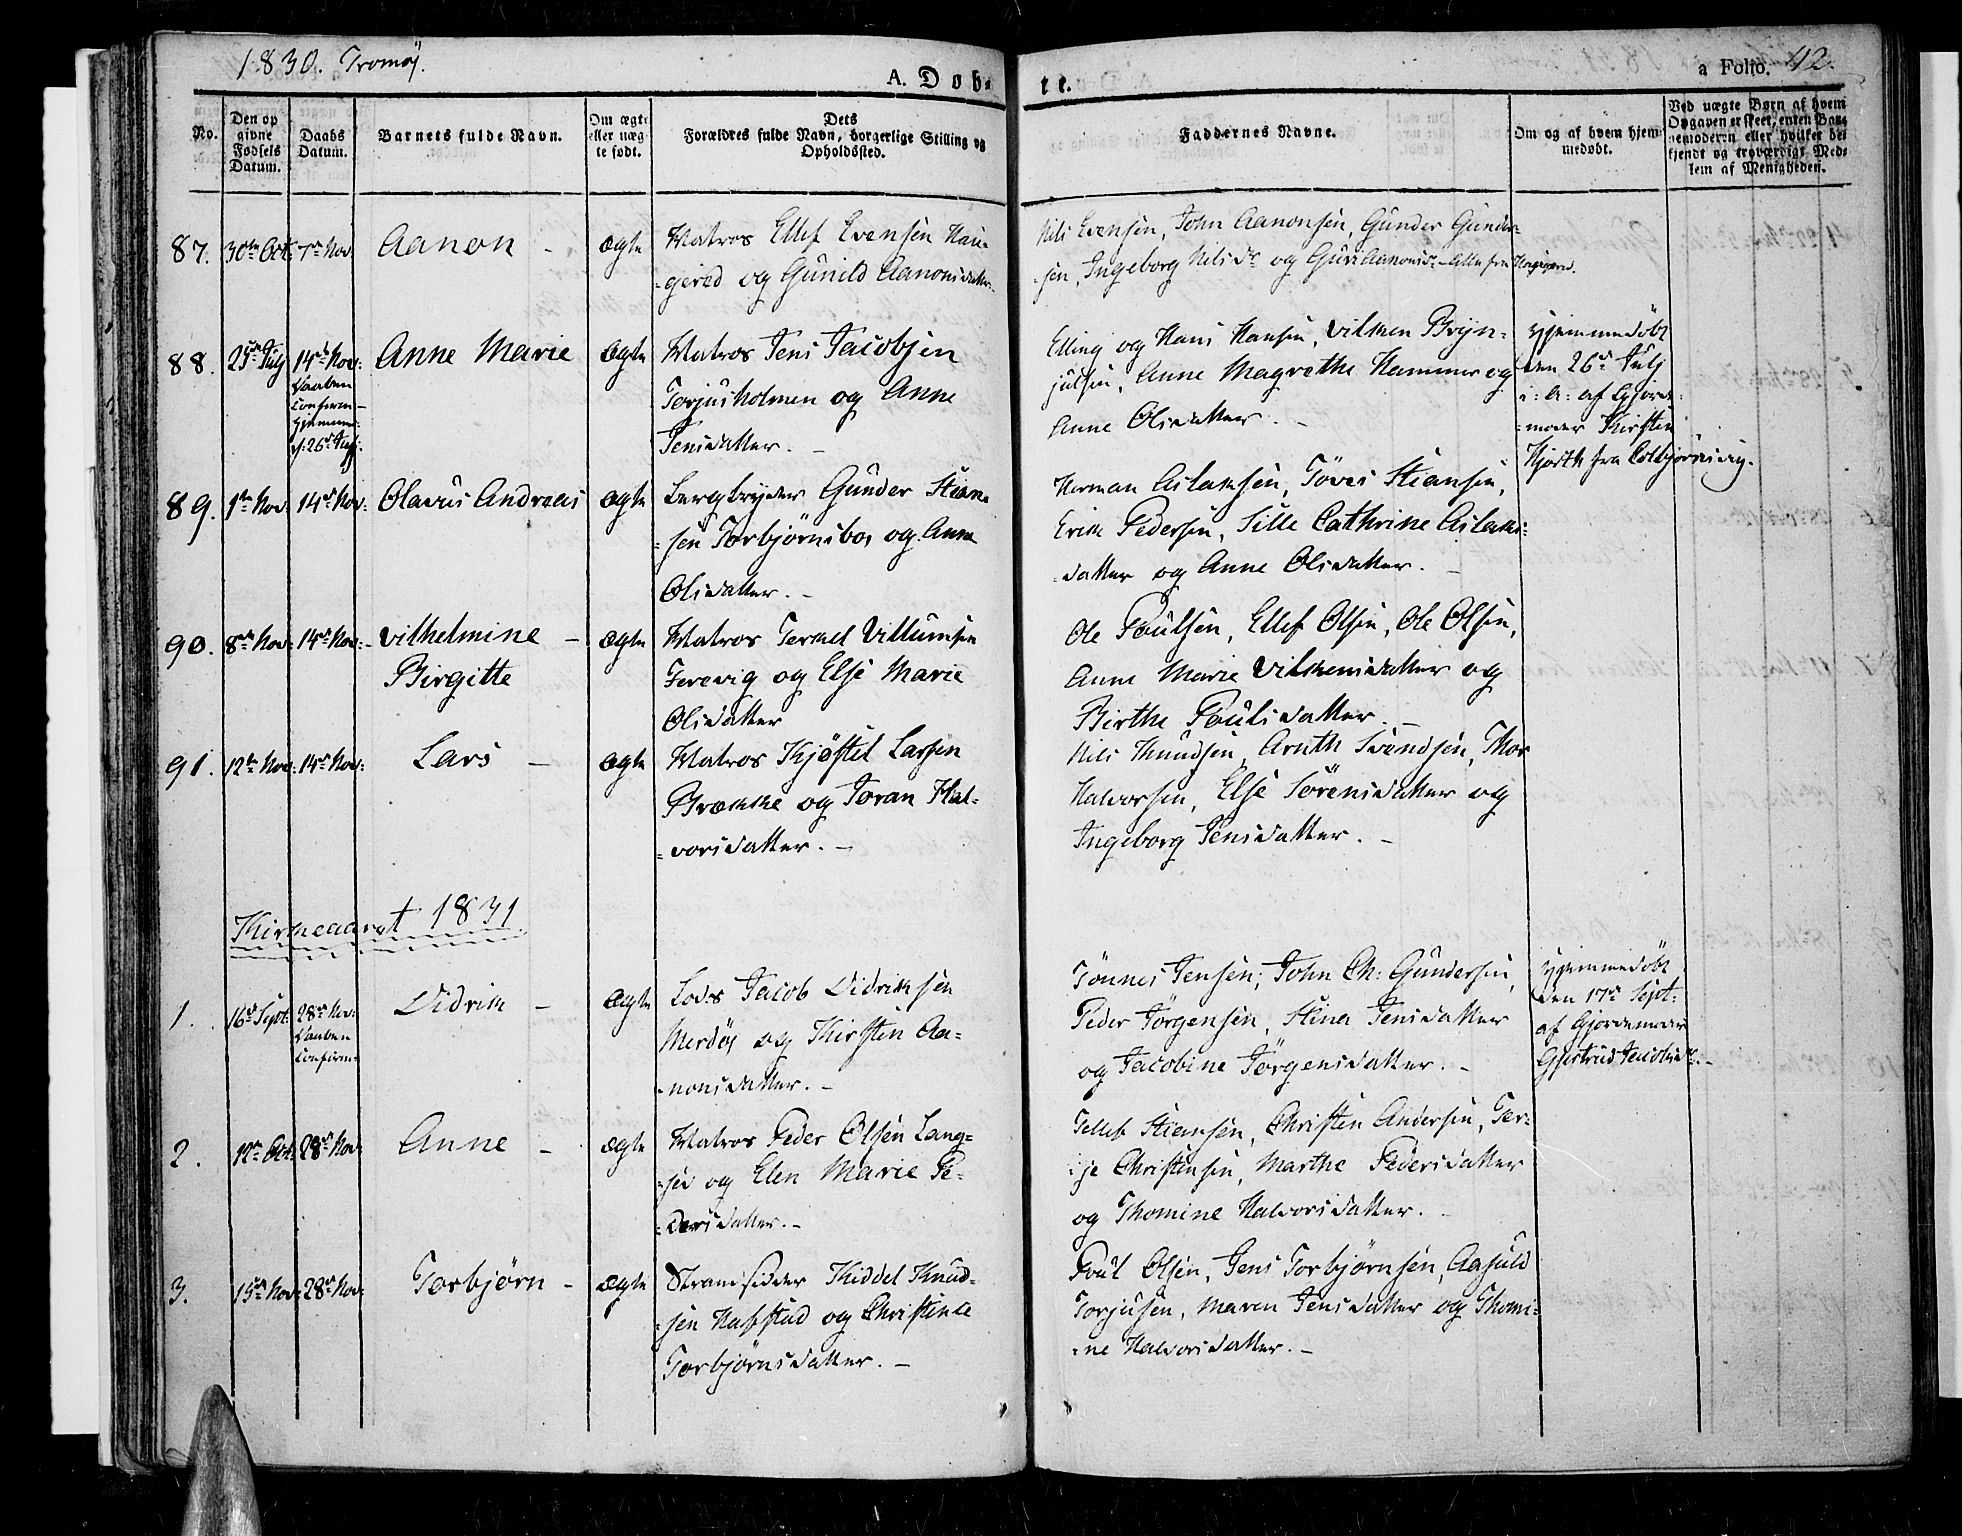 1830. Tromøj.
A. Døb-
te.
a Folio. 42.
No.
Den op
givne
Fødsels
Datum.
Daabs
Datum.
Barnets fulde Navn.
Om ægte
eller uæg-
te født.
Dets
Forældres fulde Navn, borgerlige Stilling og
Opholdssted.
Faddernes Navne.
Om og af hvem hjem-
medøbt.
Ved uægte Børn af hvem
Opgaven er skeet, enten Bar-
nemoderen eller hvilket bei
kjendt og troværdigt Med-
lem af Menigheden.
87. 30te Oct: 7de Nov Aanon - ægte
Matros Ellef Evensen Hau-
-gered og Gunild Aanonsdatter.
Nils Evensen, John Aanonsen, Gunder Gunder-
-sen, Ingeborg Nilsdr og Guri Aanonsdr - Alle fra Haugered.
88. 25de Julj 14de Nov: Anne Marie ægte
Daaben
Confirm-
Hjemme:
d: 26de Julj.
Matros Jens Jacobsen
Torjusholmen og Anne
Jensdatter. -
Elling og Hans Hansen, Vilken Bryn-
julsen, Anne Magrethe Hammer og
Anne Olsdatter. -
Hjemmedöbt
den 26de Julj
i: A: af Gjorde-
=moder Kirsten
Hjorth fra Colbjørnsvig.
89. 1te Nov: 14de Nov: Olavus Andreas ægte
Bergbryder Gunder Stian-
=sen Torbjørnsboe og Anne
Olsdatter. -
Herman Aslaksen, Töres Stiansen,
Erik Pedersen, Sille Cathrine Aslaks-
=datter og Anne Olsdatter. -
90. 8de Nov: 14de Nov: Vilhelmine - ægte
Birgitte
Matros Terkel Villumsen
Færevig og Else Marie
Olsdatter
Ole Poulsen, Ellef Olsen, Ole Olsen,
Anne Marie Vilkensdatter og
Birthe Poulsdatter. -
91. 12te Nov: 14de Nov: Lars - ægte
Matros Kjöstel Larsen
Brække og Joran Hal-
=vorsdatter. -
Nils Knudsen, Arnth Svendsen, Thor
Halvorsen, Else Sörensdatter og
Ingeborg Jensdatter. -
Kirkeaaret 1831
1. 16de Sept: 28de Nov: Didrik - ægte
Daaben
Confirm-
Lods Jacob Didriksen
Merdöj og Kirsten Aa-
=nonsdatter. -
Tönnes Jensen, John Ch: Gundersen,
Peder Jörgensen, Stina Jensdatter
og Jacobine Jörgensdatter. -
Hjemmedöbt
den 17de Sept:
af Gjordemoder
Gjertrud Jacobsdr. -
2. 12te Oct: 28de Nov: Anne - ægte
Matros Peder Olsen Lang-
=sev og Elen Marie Pe-
=dersdatter. -
Tellef Stiansen, Christen Andersen, Ter-
=je Christensen, Marthe Pedersdatter
og Thomine Halvorsdatter. -
3. 15de Nov: 28de Nov: Torbjørn - ægte
Strandsidder Kiddel Knud-
=sen Hafstad og Christense
Torbjørnsdatter. -
Poul Olsen, Jens Torbjørnsen, Aasuld
Torjusen, Maren Jensdatter og Thomi-
=ne Halvorsdatter. -